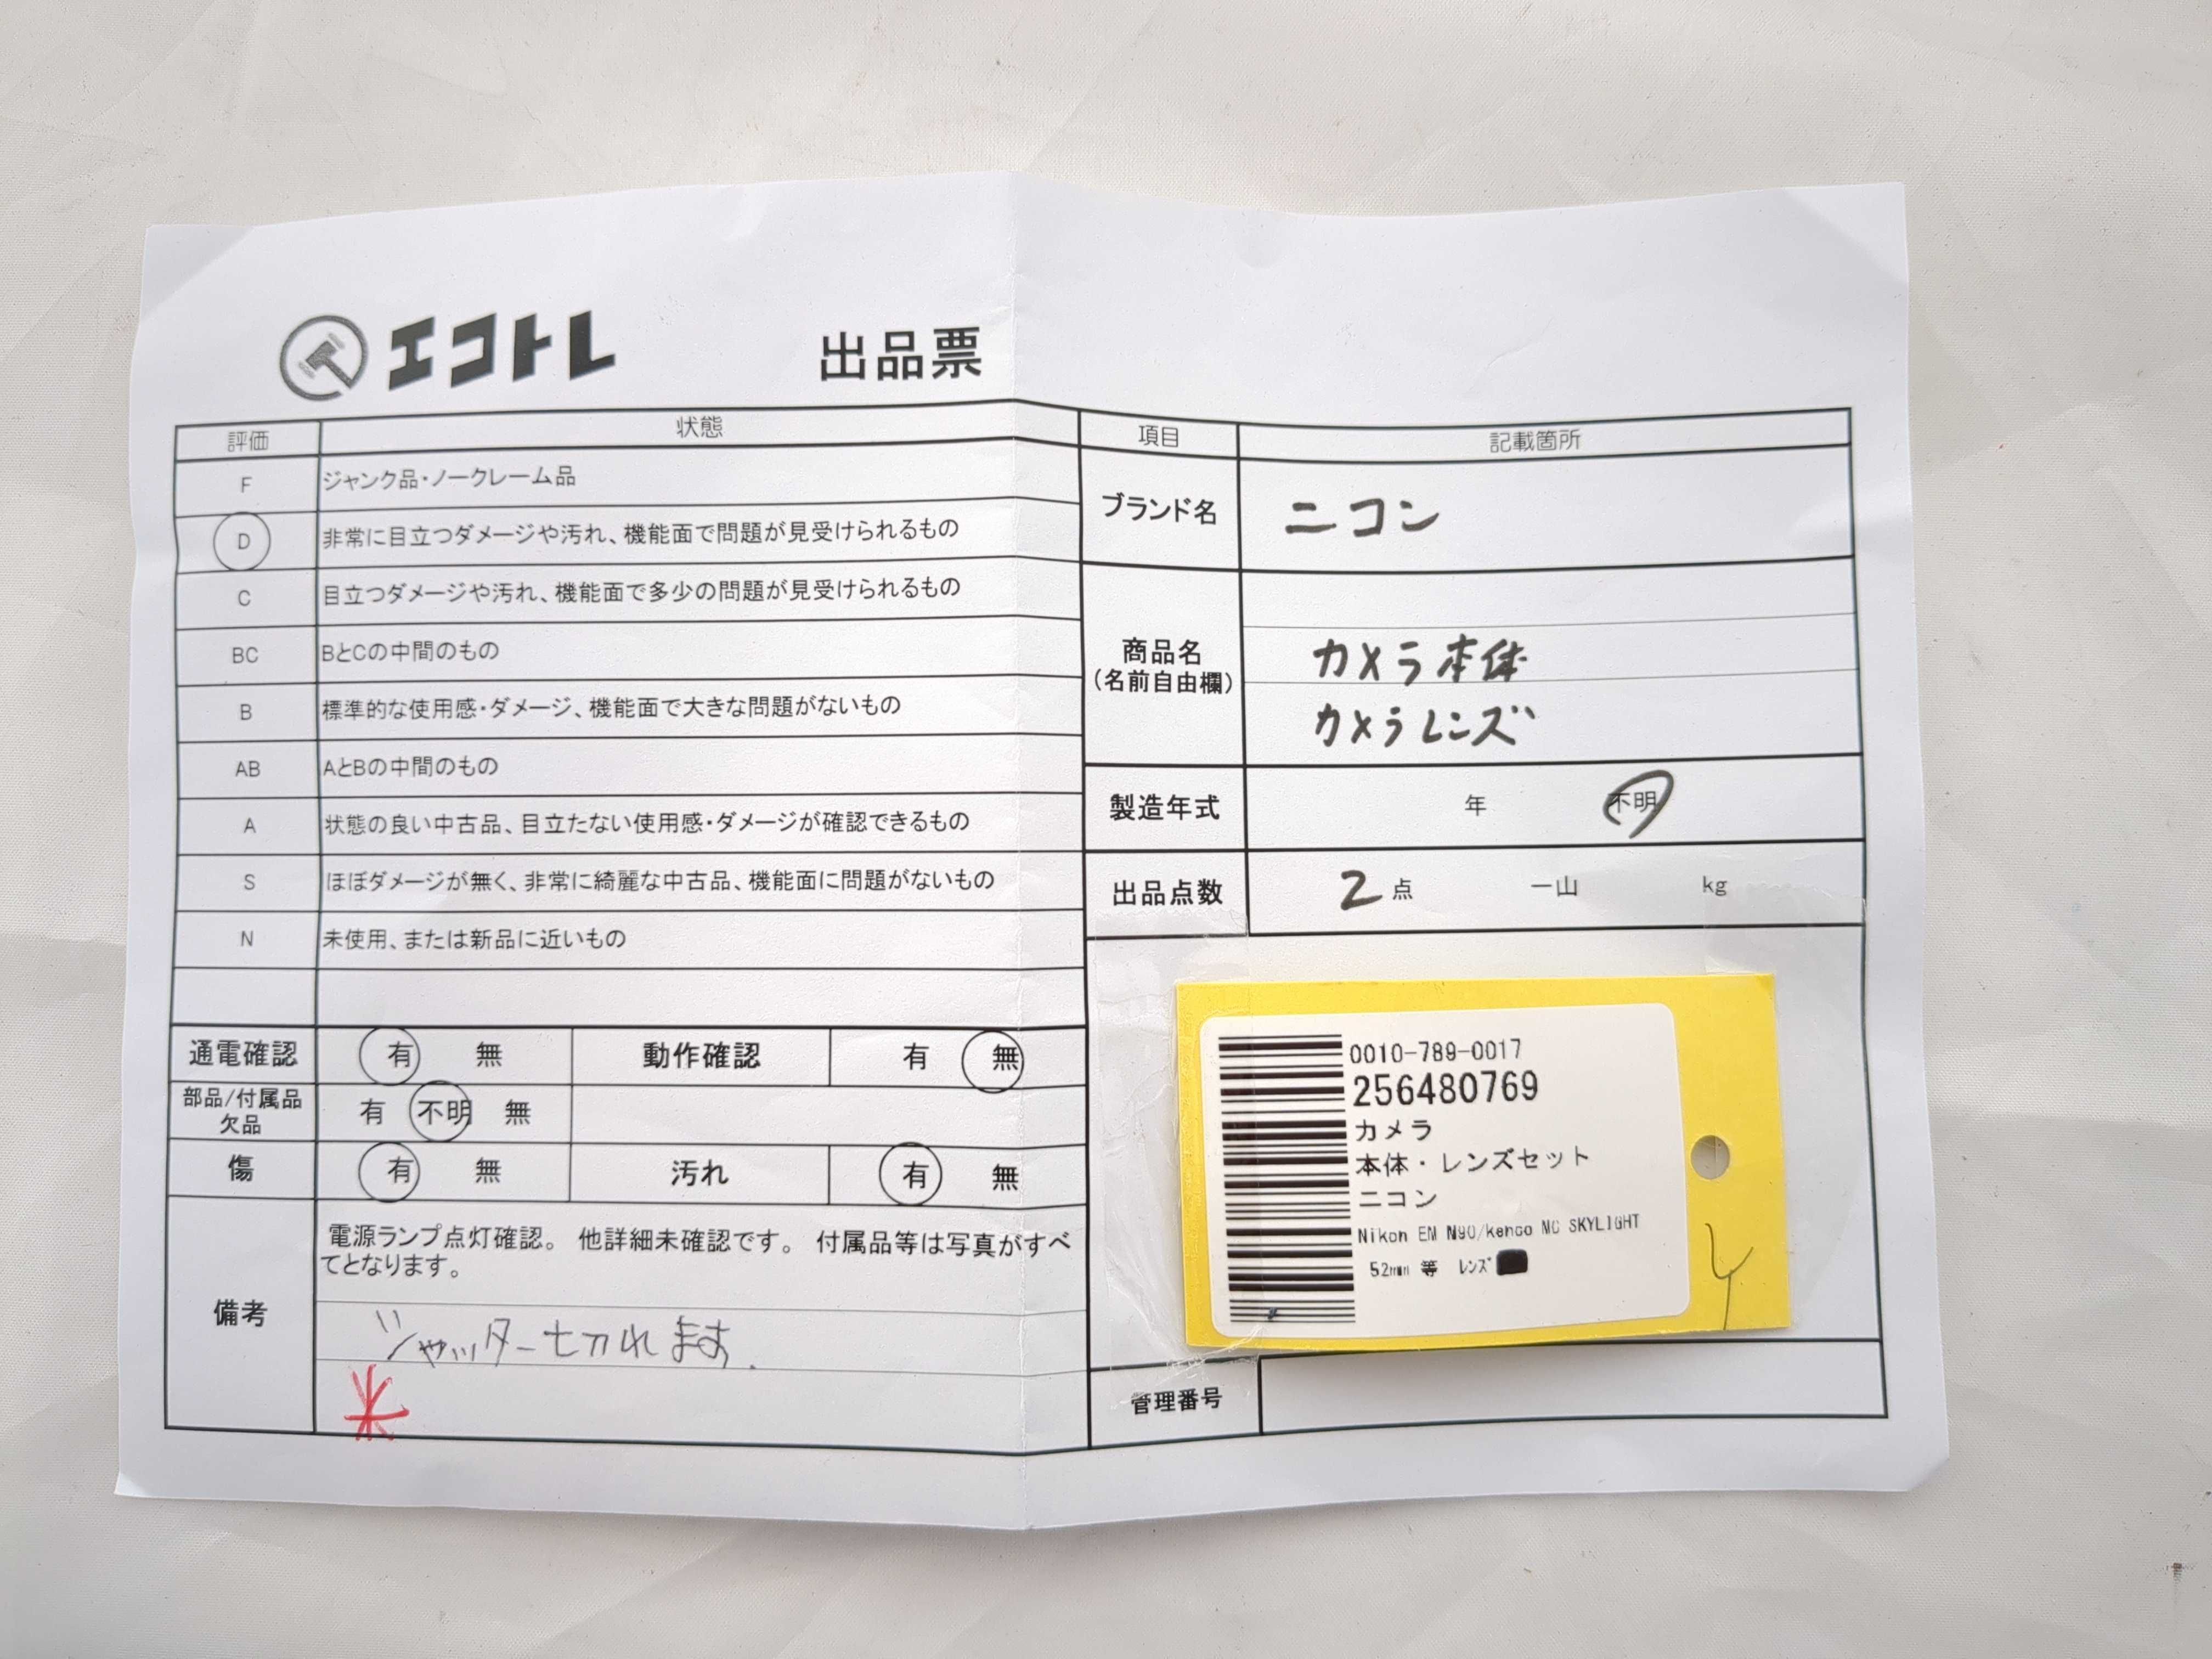 エコトレ 出品票
評価 状態
F ジャンク品・ノークレーム品
D 非常に目立つダメージや汚れ、機能面で問題が見受けられるもの
C 目立つダメージや汚れ、機能面で多少の問題が見受けられるもの
BC BとCの中間のもの
B 標準的な使用感・ダメージ、機能面で大きな問題がないもの
AB AとBの中間のもの
A 状態の良い中古品、目立たない使用感・ダメージが確認できるもの
S ほぼダメージが無く、非常に綺麗な中古品、機能面に問題がないもの
N 未使用、または新品に近いもの
通電確認 有 無 動作確認 有 無
部品/付属品
欠品
有 不明 無
傷 有 無 汚れ 有 無
備考
電源ランプ点灯確認。 他詳細未確認です。 付属品等は写真がすべ
てとなります。
シャッター切れます.
項目 記載箇所
ブランド名 ニコン
商品名
(名前自由欄)
カメラ本体
カメラレンズ
製造年式 年 不明
出品点数 2点 一山 kg
0010-789-0017
256480769
カメラ
本体・レンズセット
ニコン
Nikon EM N90/kenco MC SKYLIGHT
52mm 等 レンズ
管理番号